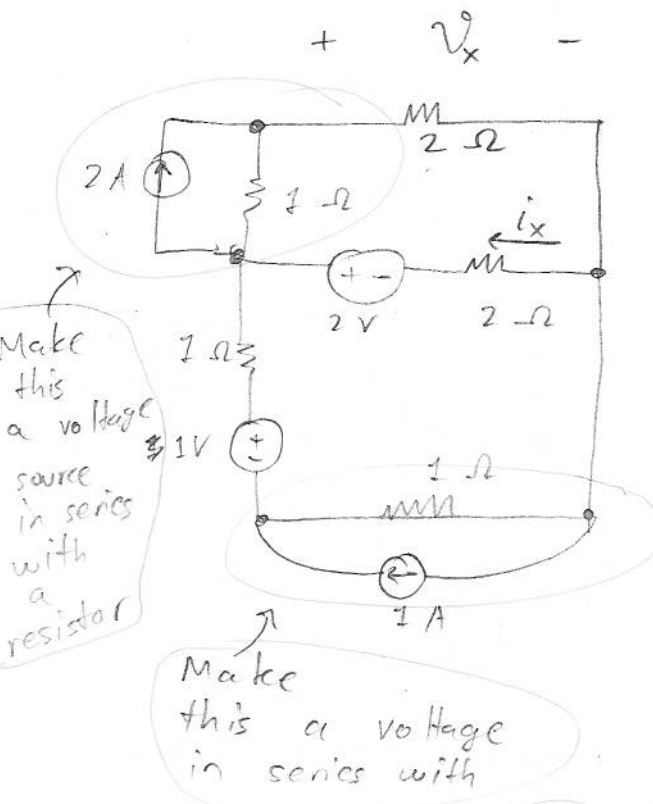 + Vx -
2 Ω
2 A
1 Ω
ix
+ -
2 V
2 Ω
Make
this
a voltage
source
in series
with
a
resistor
1 Ω
1V
+
-
1 Ω
1 A
Make
this a voltage
in series with